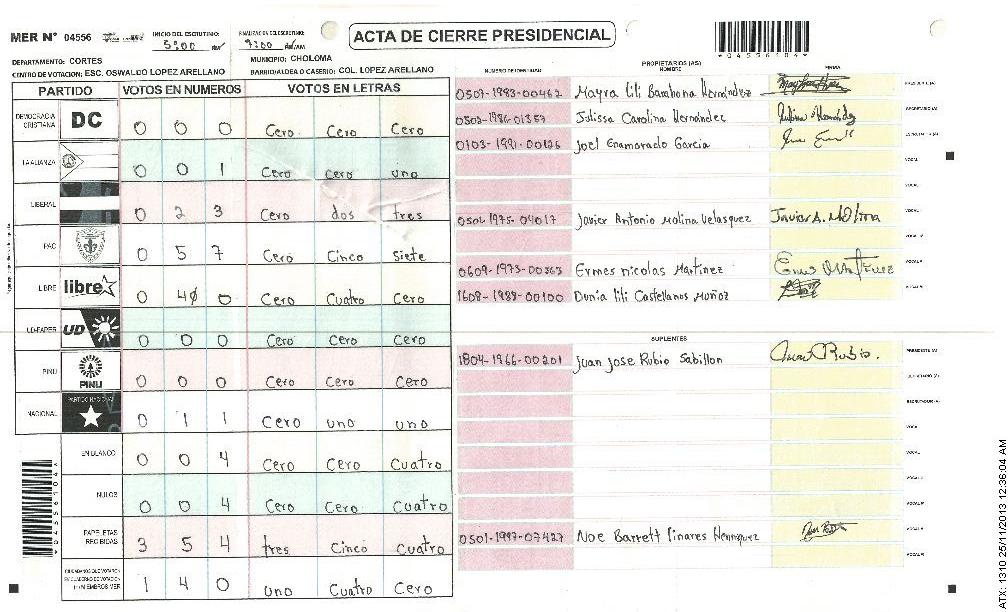 MER N° 04556
INICIO DEL ESCRUTINIO: 5:00
FINALIZACION DEL ESCRUTINIO: 9:00 AM
ACTA DE CIERRE PRESIDENCIAL
*04556104*
DEPARTAMENTO: CORTES
MUNICIPIO: CHOLOMA
CENTRO DE VOTACION: ESC. OSWALDO LOPEZ ARELLANO
BARRIO/ALDEA O CASERIO: COL. LOPEZ ARELLANO
PARTIDO VOTOS EN NUMEROS VOTOS EN LETRAS
DEMOCRACIA CRISTIANA DC 0 0 0 Cero Cero Cero
LA ALIANZA 0 0 1 Cero Cero uno
LIBERAL 0 2 3 Cero dos tres
PAC 0 5 7 Cero Cinco siete
LIBRE libre 0 4 0 Cero Cuatro Cero
UD-FAPER UD 0 0 0 Cero Cero Cero
PINU PINU 0 0 0 Cero Cero Cero
NACIONAL PARTIDO NACIONAL 0 1 1 Cero uno uno
EN BLANCO 0 0 4 Cero Cero Cuatro
NULOS 0 0 4 Cero Cero Cuatro
PAPELETAS RECIBIDAS 3 5 4 tres Cinco Cuatro
CIUDADANOS QUE VOTARON EN CUADERNO DE VOTACION (+) MIEMBROS MER 1 4 0 uno Cuatro Cero
NUMERO DE IDENTIDAD PROPIETARIOS (AS) NOMBRE FIRMA
0507-1983-00462 Mayra lili Barahona Hernández PRESIDENTE (A)
0502-1986-01357 Julissa Carolina Hernández SECRETARIO (A)
0103-1991-00126 Joel Enamorado Garcia ESCRUTADOR (A)
VOCAL
VOCAL
0501-1975-04017 Javier Antonio Molina Velasquez Javier A. Molina VOCAL
VOCAL
0609-1973-00363 Ermes nicolas Martinez VOCAL
1608-1989-00100 Dunia lili Castellanos Muñoz VOCAL
SUPLENTES
1804-1966-00201 Juan Jose Rubio Sabillon PRESIDENTE (A)
SECRETARIO (A)
ESCRUTADOR (A)
VOCAL
VOCAL
VOCAL
VOCAL
0501-1997-07427 Noe Barrett linares Henriquez VOCAL
VOCAL
ATX: 1310 25/11/2013 12:36:04 AM